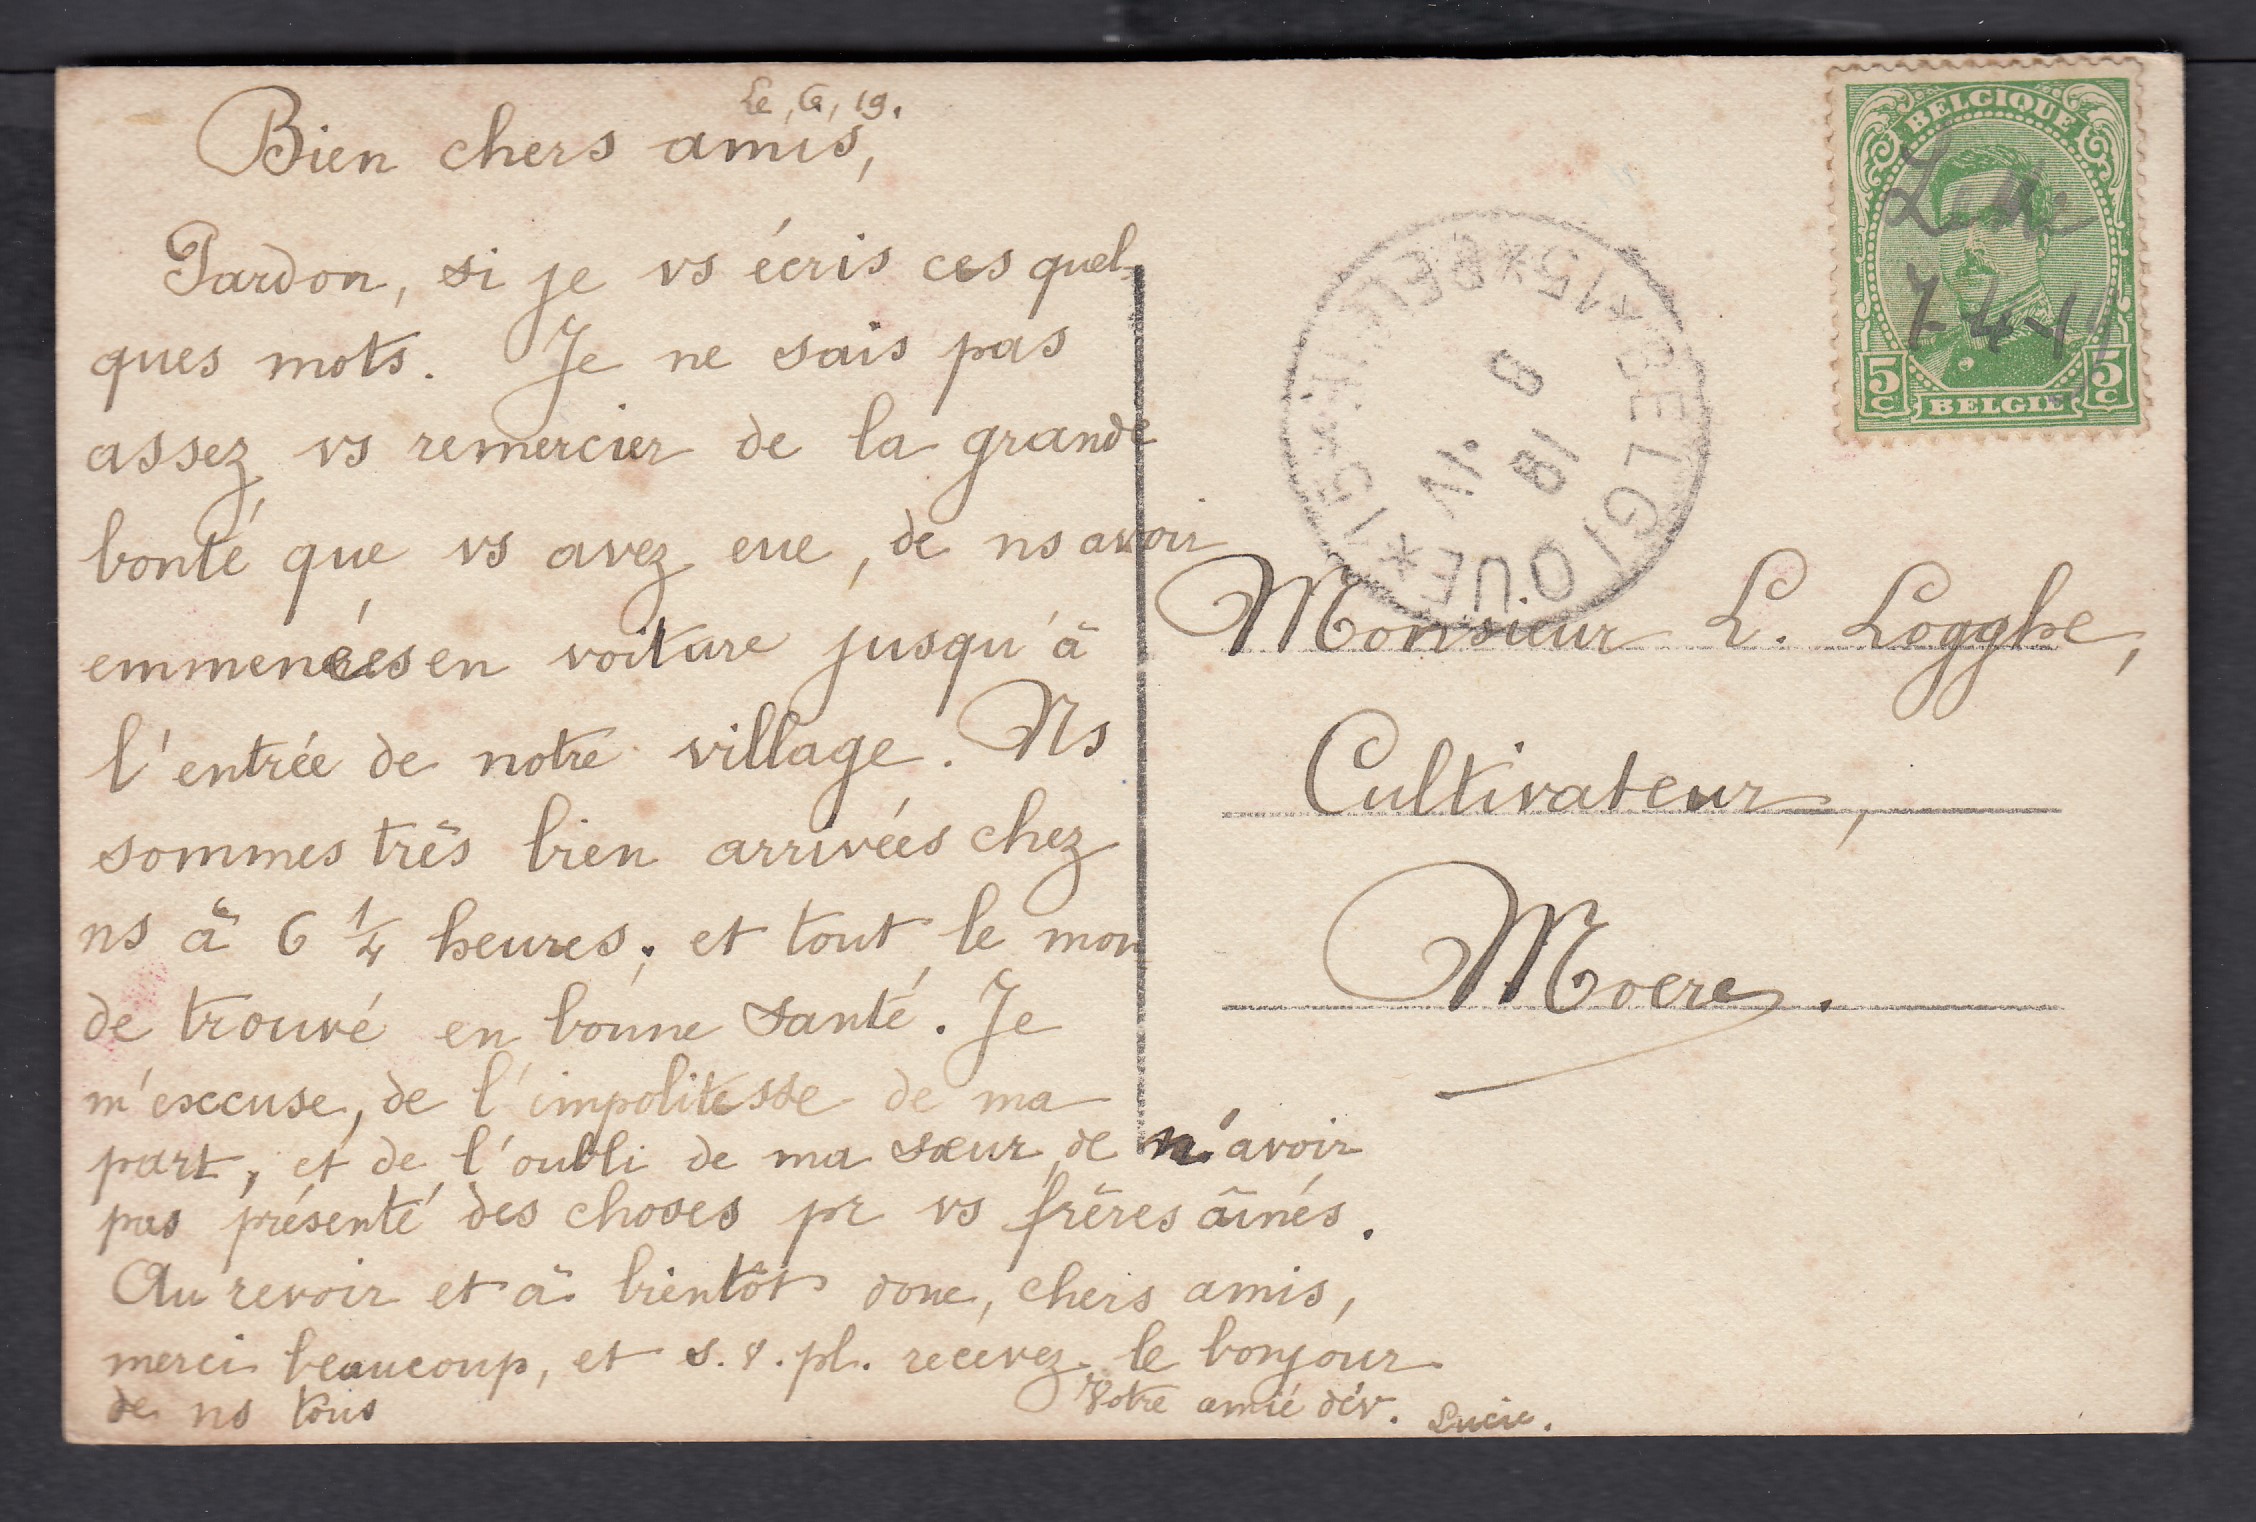 Le, 6, 19.
Bien chers amis,
Pardon, si je vs écris ces quel-
ques mots. Je ne sais pas
assez vs remercier de la grande
bonté que vs avez eue, de ns avoir
emmenées en voiture jusqu'à
l'entrée de notre village. Ns
sommes très bien arrivées chez
ns à 6 1/4 heures, et tout le mon
de trouvé en bonne santé. Je
m'excuse, de l'impolitesse de ma
part, et de l'oubli de ma sœur, de n'avoir
pas présenté des choses pr vs frères aînés.
Au revoir et à bientôt donc, chers amis,
merci beaucoup, et s. v. pl. recevez le bonjour
de ns tous
Votre amie dév. Lucie.
BELGIQUE
5 C 5 C
BELGIË
7-4-1
*BELGIQUE*15*
9
IV.
18
Monsieur L. Logghe,
Cultivateur,
Moere.